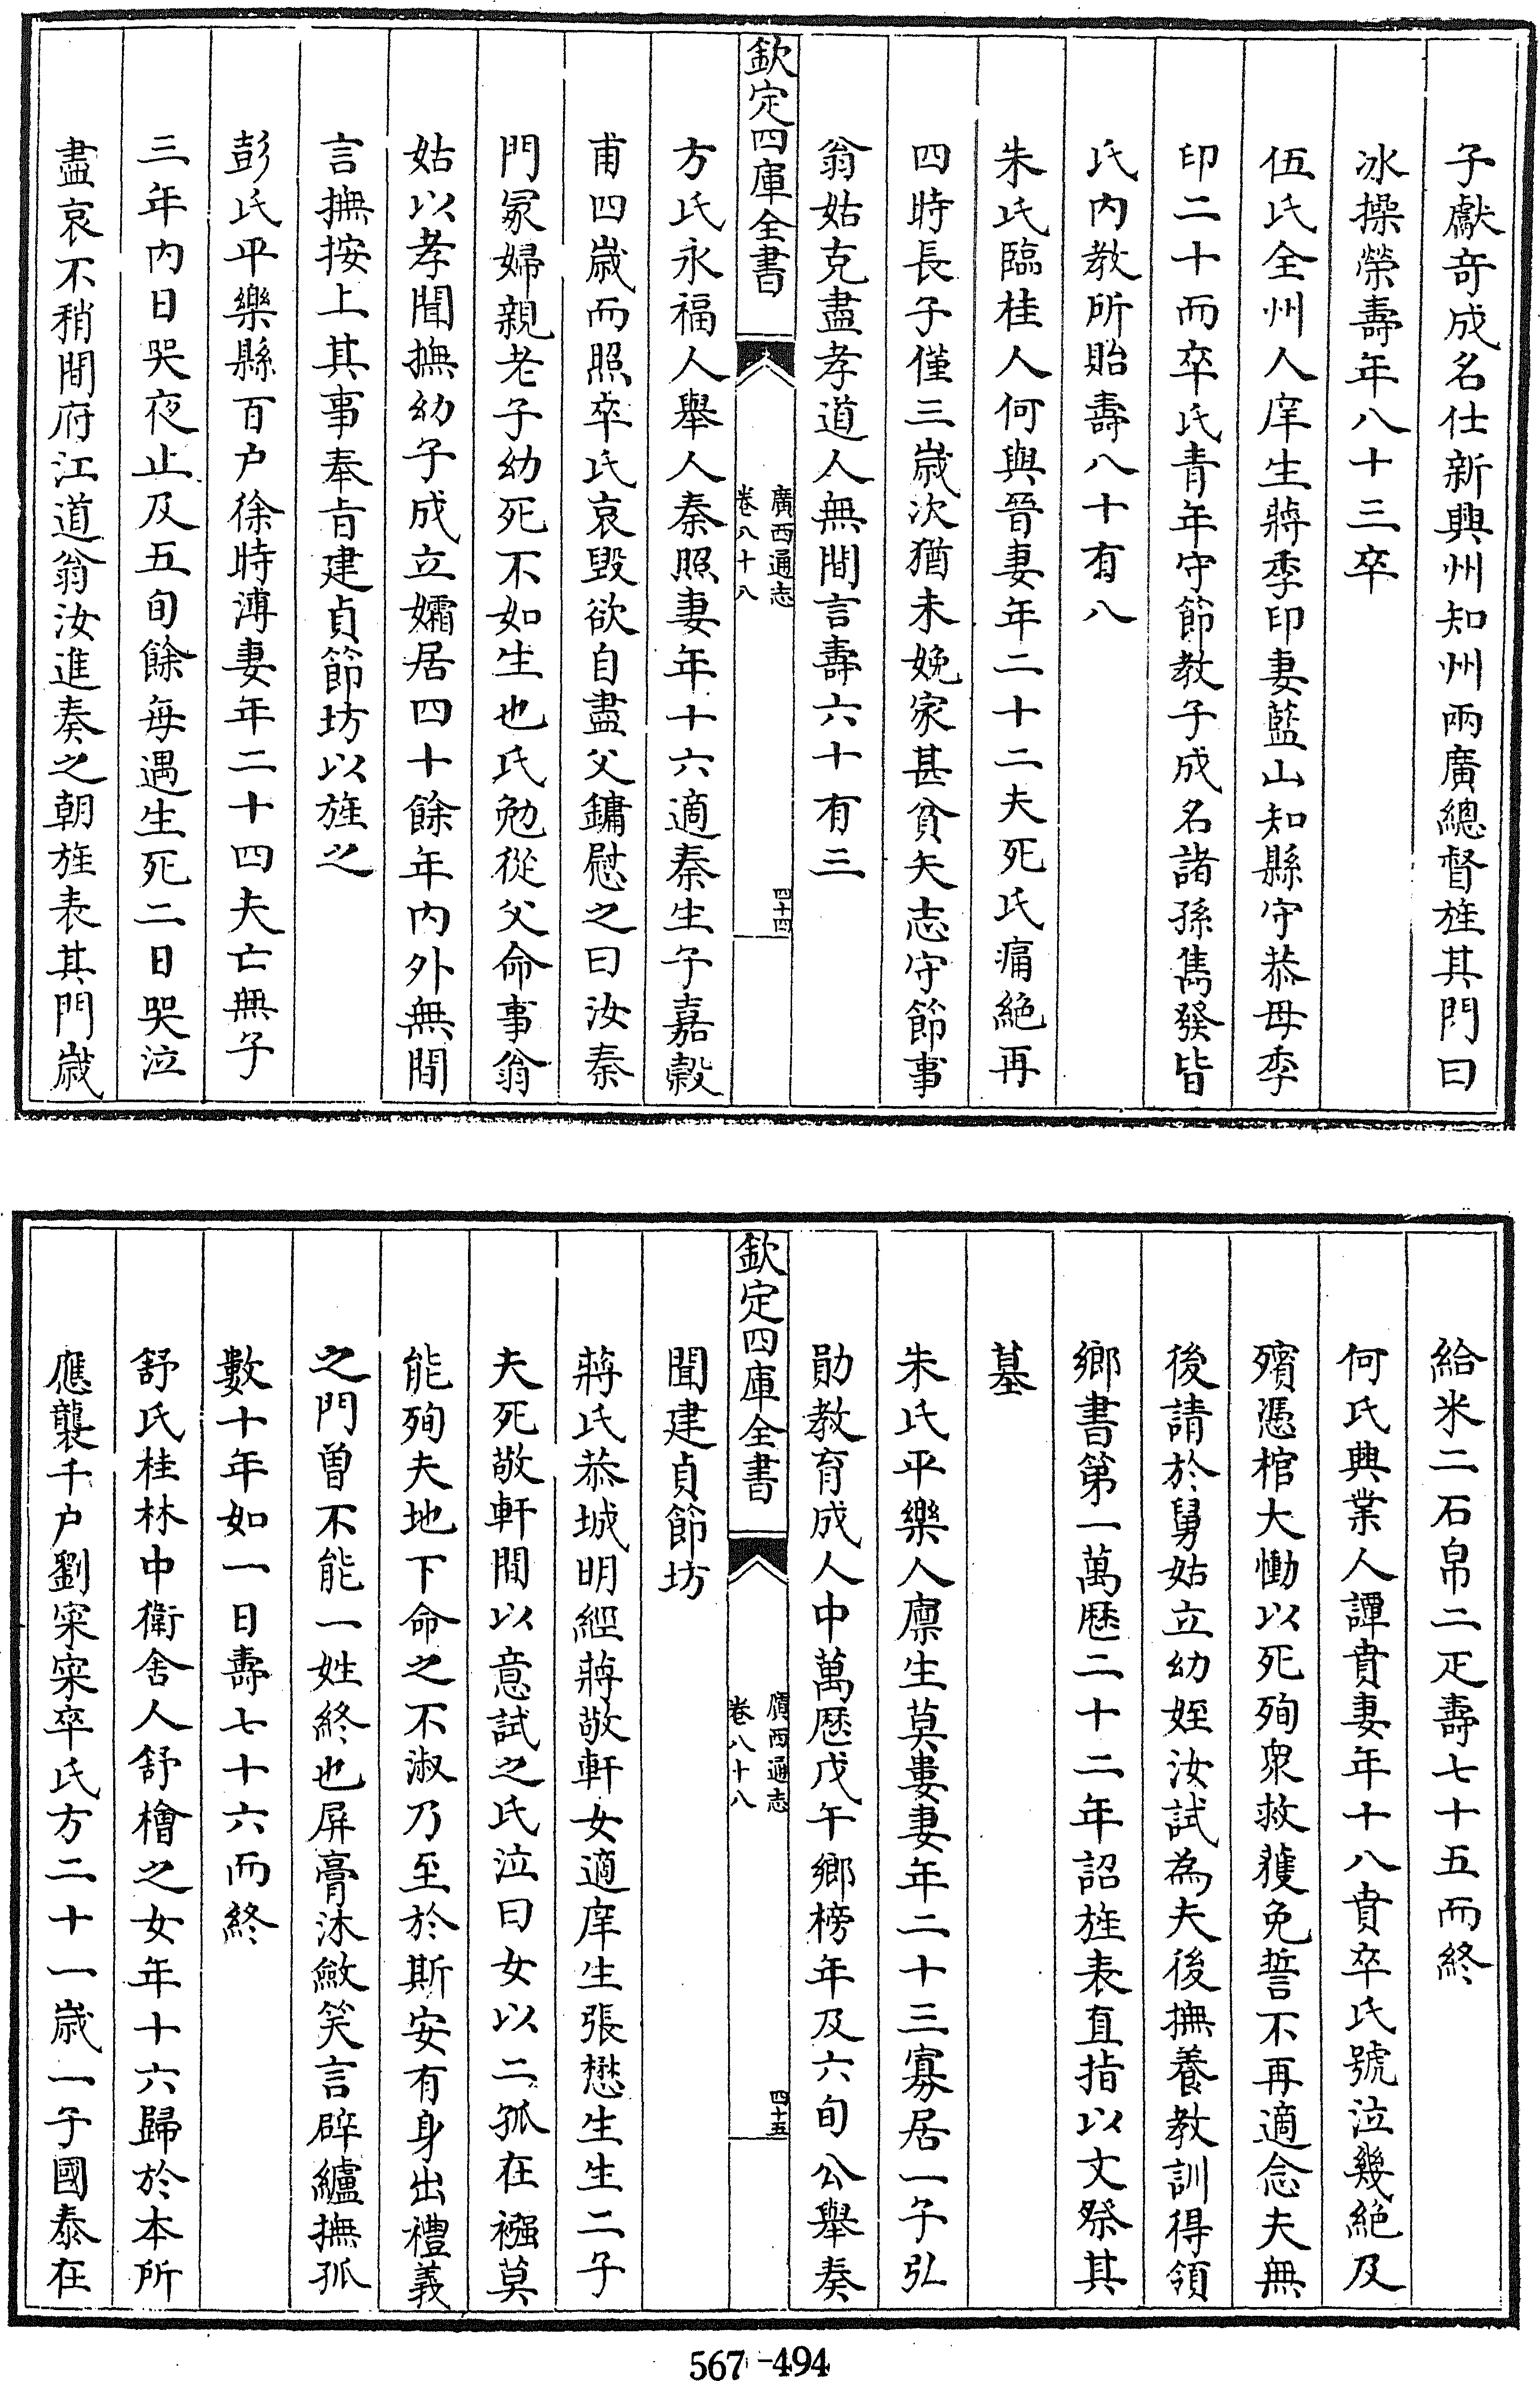 子獻奇成名仕新興州知州兩廣總督旌其門曰
冰操榮壽年八十三卒
伍氏全州人庠生蔣季印妻藍山知縣守恭母季
印二十而卒氏青年守節教子成名諸孫雋發皆
氏內教所貽壽八十有八
朱氏臨桂人何與晉妻年二十二夫死氏痛絕再
四時長子僅三歲次猶未娩家甚貧矢志守節事
翁姑克盡孝道人無間言壽六十有三
欽定四庫全書
廣西通志
卷八十八
四十四
方氏永福人舉人秦照妻年十六適秦生子嘉榖
甫四歲而照卒氏哀毀欲自盡父鏞慰之曰汝秦
門冢婦親老子幼死不如生也氏勉從父命事翁
姑以孝聞撫幼子成立孀居四十餘年內外無間
言撫按上其事奉旨建貞節坊以旌之
彭氏平樂縣百户徐時溥妻年二十四夫亡無子
三年內日哭夜止及五旬餘每遇生死二日哭泣
盡哀不稍間府江道翁汝進奏之朝旌表其門歲
給米二石帛二疋壽七十五而終
何氏興業人譚賁妻年十八賁卒氏號泣幾絕及
殯憑棺大慟以死殉衆救獲免誓不再適念夫無
後請於舅姑立幼姪汝試為夫後撫養教訓得領
鄉書第一萬歷二十二年詔旌表直指以文祭其
墓
朱氏平樂人廪生莫婁妻年二十三寡居一子弘
勛教育成人中萬歷戊午鄉榜年及六旬公舉奏
欽定四庫全書
廣西通志
卷八十八
四十五
聞建貞節坊
蔣氏恭城明經蔣敬軒女適庠生張懋生生二子
夫死敬軒間以意試之氏泣曰女以二孤在襁莫
能殉夫地下命之不淑乃至於斯安有身出禮義
之門曾不能一姓終也屏膏沐斂笑言辟纑撫孤
數十年如一日壽七十六而終
舒氏桂林中衛舍人舒檜之女年十六歸於本所
應襲千户劉宷宷卒氏方二十一歲一子國泰在
567-494